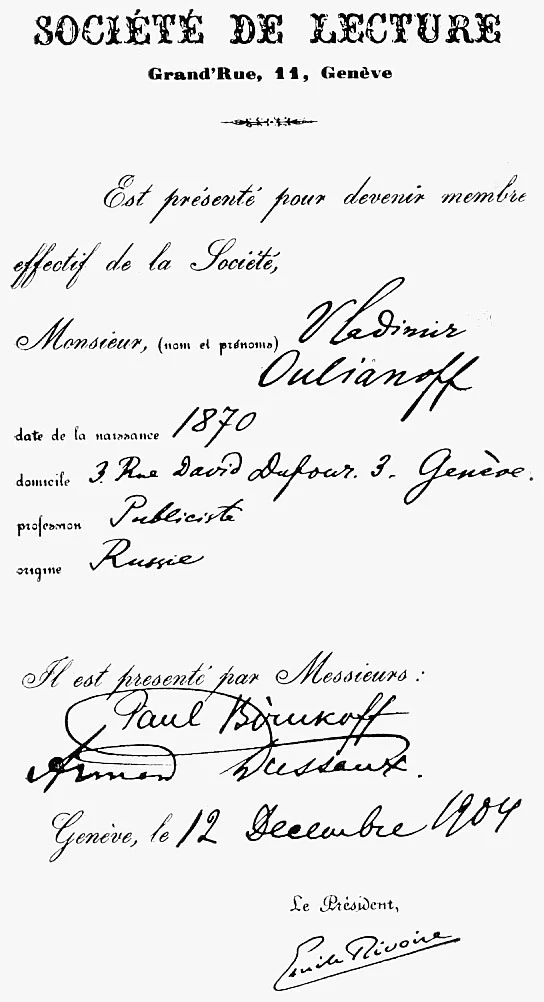 SOCIÉTÉ DE LECTURE
Grand'Rue, 11, Genève
Est présenté pour devenir membre
effectif de la Société,
Monsieur, (nom et prénoms) Vladimir
Oulianoff
date de la naissance 1870
domicile 3. Rue David Dufour. 3. Genève.
profession Publiciste
origine Russie
Il est présenté par Messieurs :
Paul Birukoff
Armand Dussaux.
Genève, le 12 Decembre 1904
Le Président,
Emile Rivoire